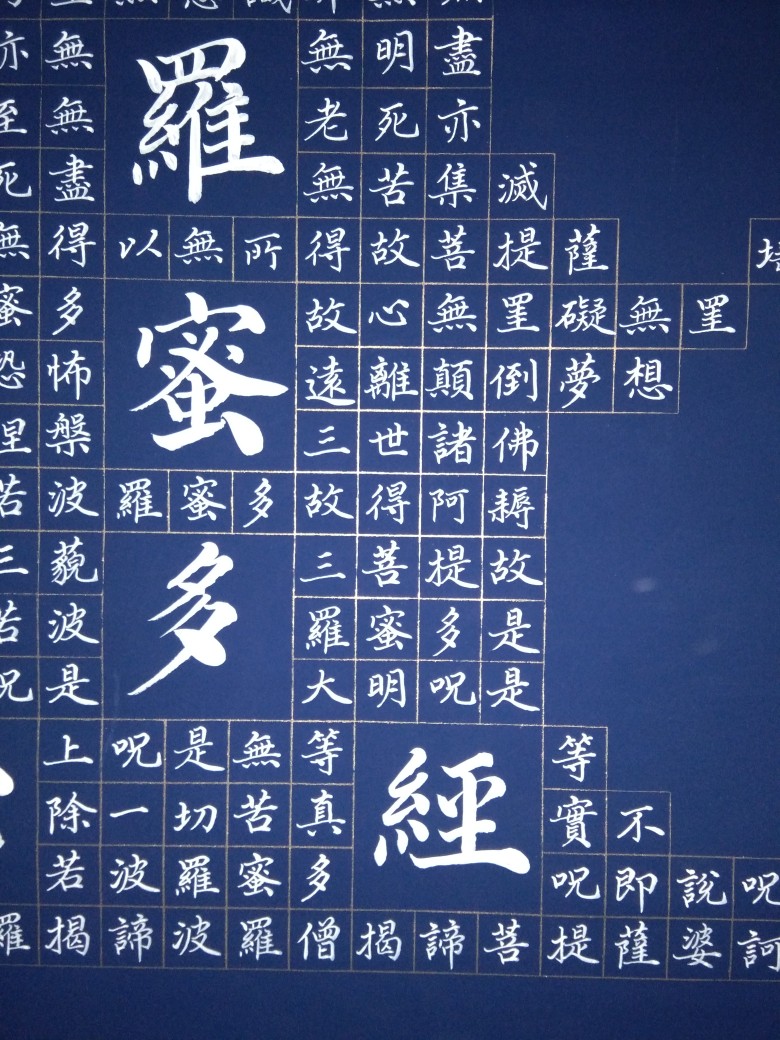 羅
蜜
多
經
亦無無明盡
至無老死亦
死盡無苦集滅
無得以無所得故菩提薩埵
蜜多故心無罣礙無罣
恐怖遠離顛倒夢想
涅槃三世諸佛
若波羅蜜多故得阿耨
三藐三菩提故
若波羅蜜多是
呪是大明呪是
上呪是無等等
除一切苦真實不
若波羅蜜多呪即說呪
羅揭諦波羅僧揭諦菩提薩婆訶